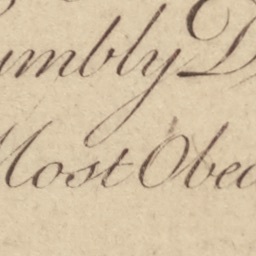 umbly D
Most Obed